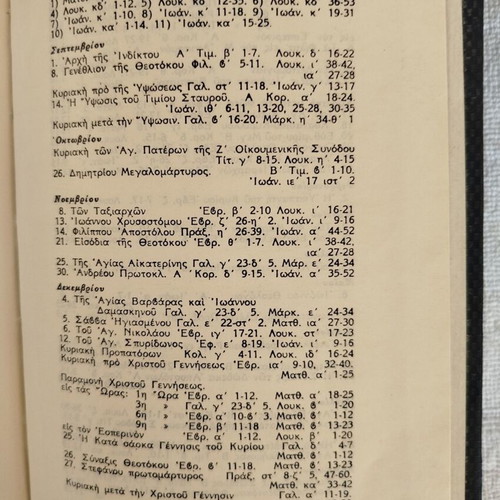 4) Λουκ. κδ' 1-12. 5) Λουκ. κδ' 12-35. 6) Λουκ. κδ' 36-53
7) Ἰωάν. κ' 1-10. 8) Ἰωάν. κ' 11-18. 9) Ἰωάν. κ' 19-31
10) Ἰωάν. κα' 1-14. 11) Ἰωάν. κα' 15-25.
Σεπτεμβρίου
1. Ἀρχὴ τῆς Ἰνδίκτου Α' Τιμ. β' 1-7. Λουκ. δ' 16-22
8. Γενέθλιον τῆς Θεοτόκου Φιλ. β' 5-11. Λουκ. ι' 38-42,
ια' 27-28
Κυριακὴ πρὸ τῆς Ὑψώσεως Γαλ. στ' 11-18. Ἰωάν. γ' 13-17
14. Ἡ Ὕψωσις τοῦ Τιμίου Σταυροῦ. Α Κορ. α' 18-24.
Ἰωάν. ιθ' 6-11, 13-20, 25-28, 30-35
Κυριακὴ μετὰ τὴν Ὕψωσιν. Γαλ. β' 16-20. Μάρκ. η' 34-θ' 1
Ὀκτωβρίου
Κυριακὴ τῶν Ἁγ. Πατέρων τῆς Ζ' Οἰκουμενικῆς Συνόδου
Τίτ. γ' 8-15. Λουκ. η' 4-15
26. Δημητρίου Μεγαλομάρτυρος. Β' Τιμ. β' 1-10.
Ἰωάν. ιε' 17 ιστ' 2
Νοεμβρίου
8. Τῶν Ταξιαρχῶν Ἑβρ. β' 2-10 Λουκ. ι' 16-21
13. Ἰωάννου Χρυσοστόμου Ἑβρ. ζ' 26-η' 2. Ἰωάν. ι' 9-16
14. Φιλίππου Ἀποστόλου Πράξ. η' 26-39. Ἰωάν. α' 44-52
21. Εἰσόδια τῆς Θεοτόκου Ἑβρ. θ' 1-7. Λουκ. ι' 38-42,
ια' 27-28
25. Τῆς Ἁγίας Αἰκατερίνης Γαλ. γ' 23-δ' 5. Μάρκ. ε' 24-34
30. Ἀνδρέου Πρωτοκλ. Α Κορ. δ' 9-15. Ἰωάν. α' 35-52
Δεκεμβρίου
4. Τῆς Ἁγίας Βαρβάρας καὶ Ἰωάννου
Δαμασκηνοῦ Γαλ. γ' 23-δ' 5. Μάρκ. ε' 24-34
5. Σάββα Ἡγιασμένου Γαλ. ε' 22-στ' 2. Ματθ. ια' 27-30
6. Τοῦ Ἁγ. Νικολάου Ἑβρ. ιγ' 17-21. Λουκ. στ' 17-23
12. Τοῦ Ἁγ. Σπυρίδωνος Ἐφ. ε' 8-19. Ἰωάν. ι' 9-16
Κυριακὴ Προπατόρων Κολ. γ' 4-11. Λουκ. ιδ' 16-24
Κυριακὴ πρὸ Χριστοῦ Γεννήσεως Ἑβρ. ια' 9-10, 32-40.
Ματθ. α' 1-25
Παραμονὴ Χριστοῦ Γεννήσεως.
εἰς τὰς Ὥρας: 1η Ὥρα Ἑβρ. α' 1-12. Ματθ. α' 18-25
3η » Γαλ. γ' 23-δ' 5. Λουκ. β' 1-20
6η » Ἑβρ. α' 10-β' 3. Ματθ. β' 1-12
9η » Ἑβρ. β' 11-18 Ματθ. β' 13-23
εἰς τὸν Ἑσπερινὸν Ἑβρ. α' 1-12. Λουκ. β' 1-20
25. Ἡ Κατὰ σάρκα Γέννησις τοῦ Κυρίου Γαλ. δ' 4-7
Ματθ. β' 1-12
26. Σύναξις Θεοτόκου Ἑβρ. β' 11-18. Ματθ. β' 13-23
27. Στεφάνου πρωτομάρτυρος Πράξ. στ' 8-ζ' 5, 47-60.
Ματθ. κα' 33-42
Κυριακὴ μετὰ τὴν Χριστοῦ Γέννησιν Γαλ. α' 11-19.